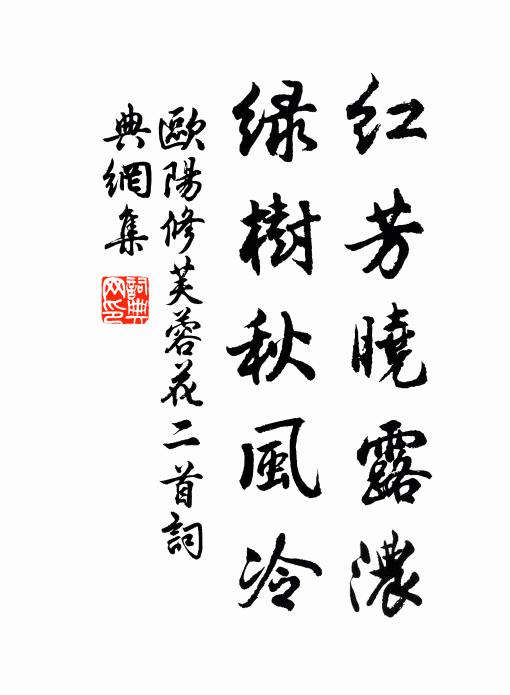 红芳曉露濃
绿樹秋風冷
歐陽修芙蓉花二首詞
典網集
詞典
网印